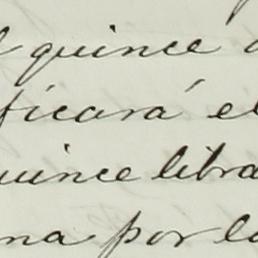 l quince d
ficará el
quince libra
na por la